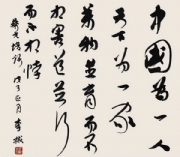 中國為一人
天下為一家
萬物並育而不
相害道並行
而不相悖
戊子正月